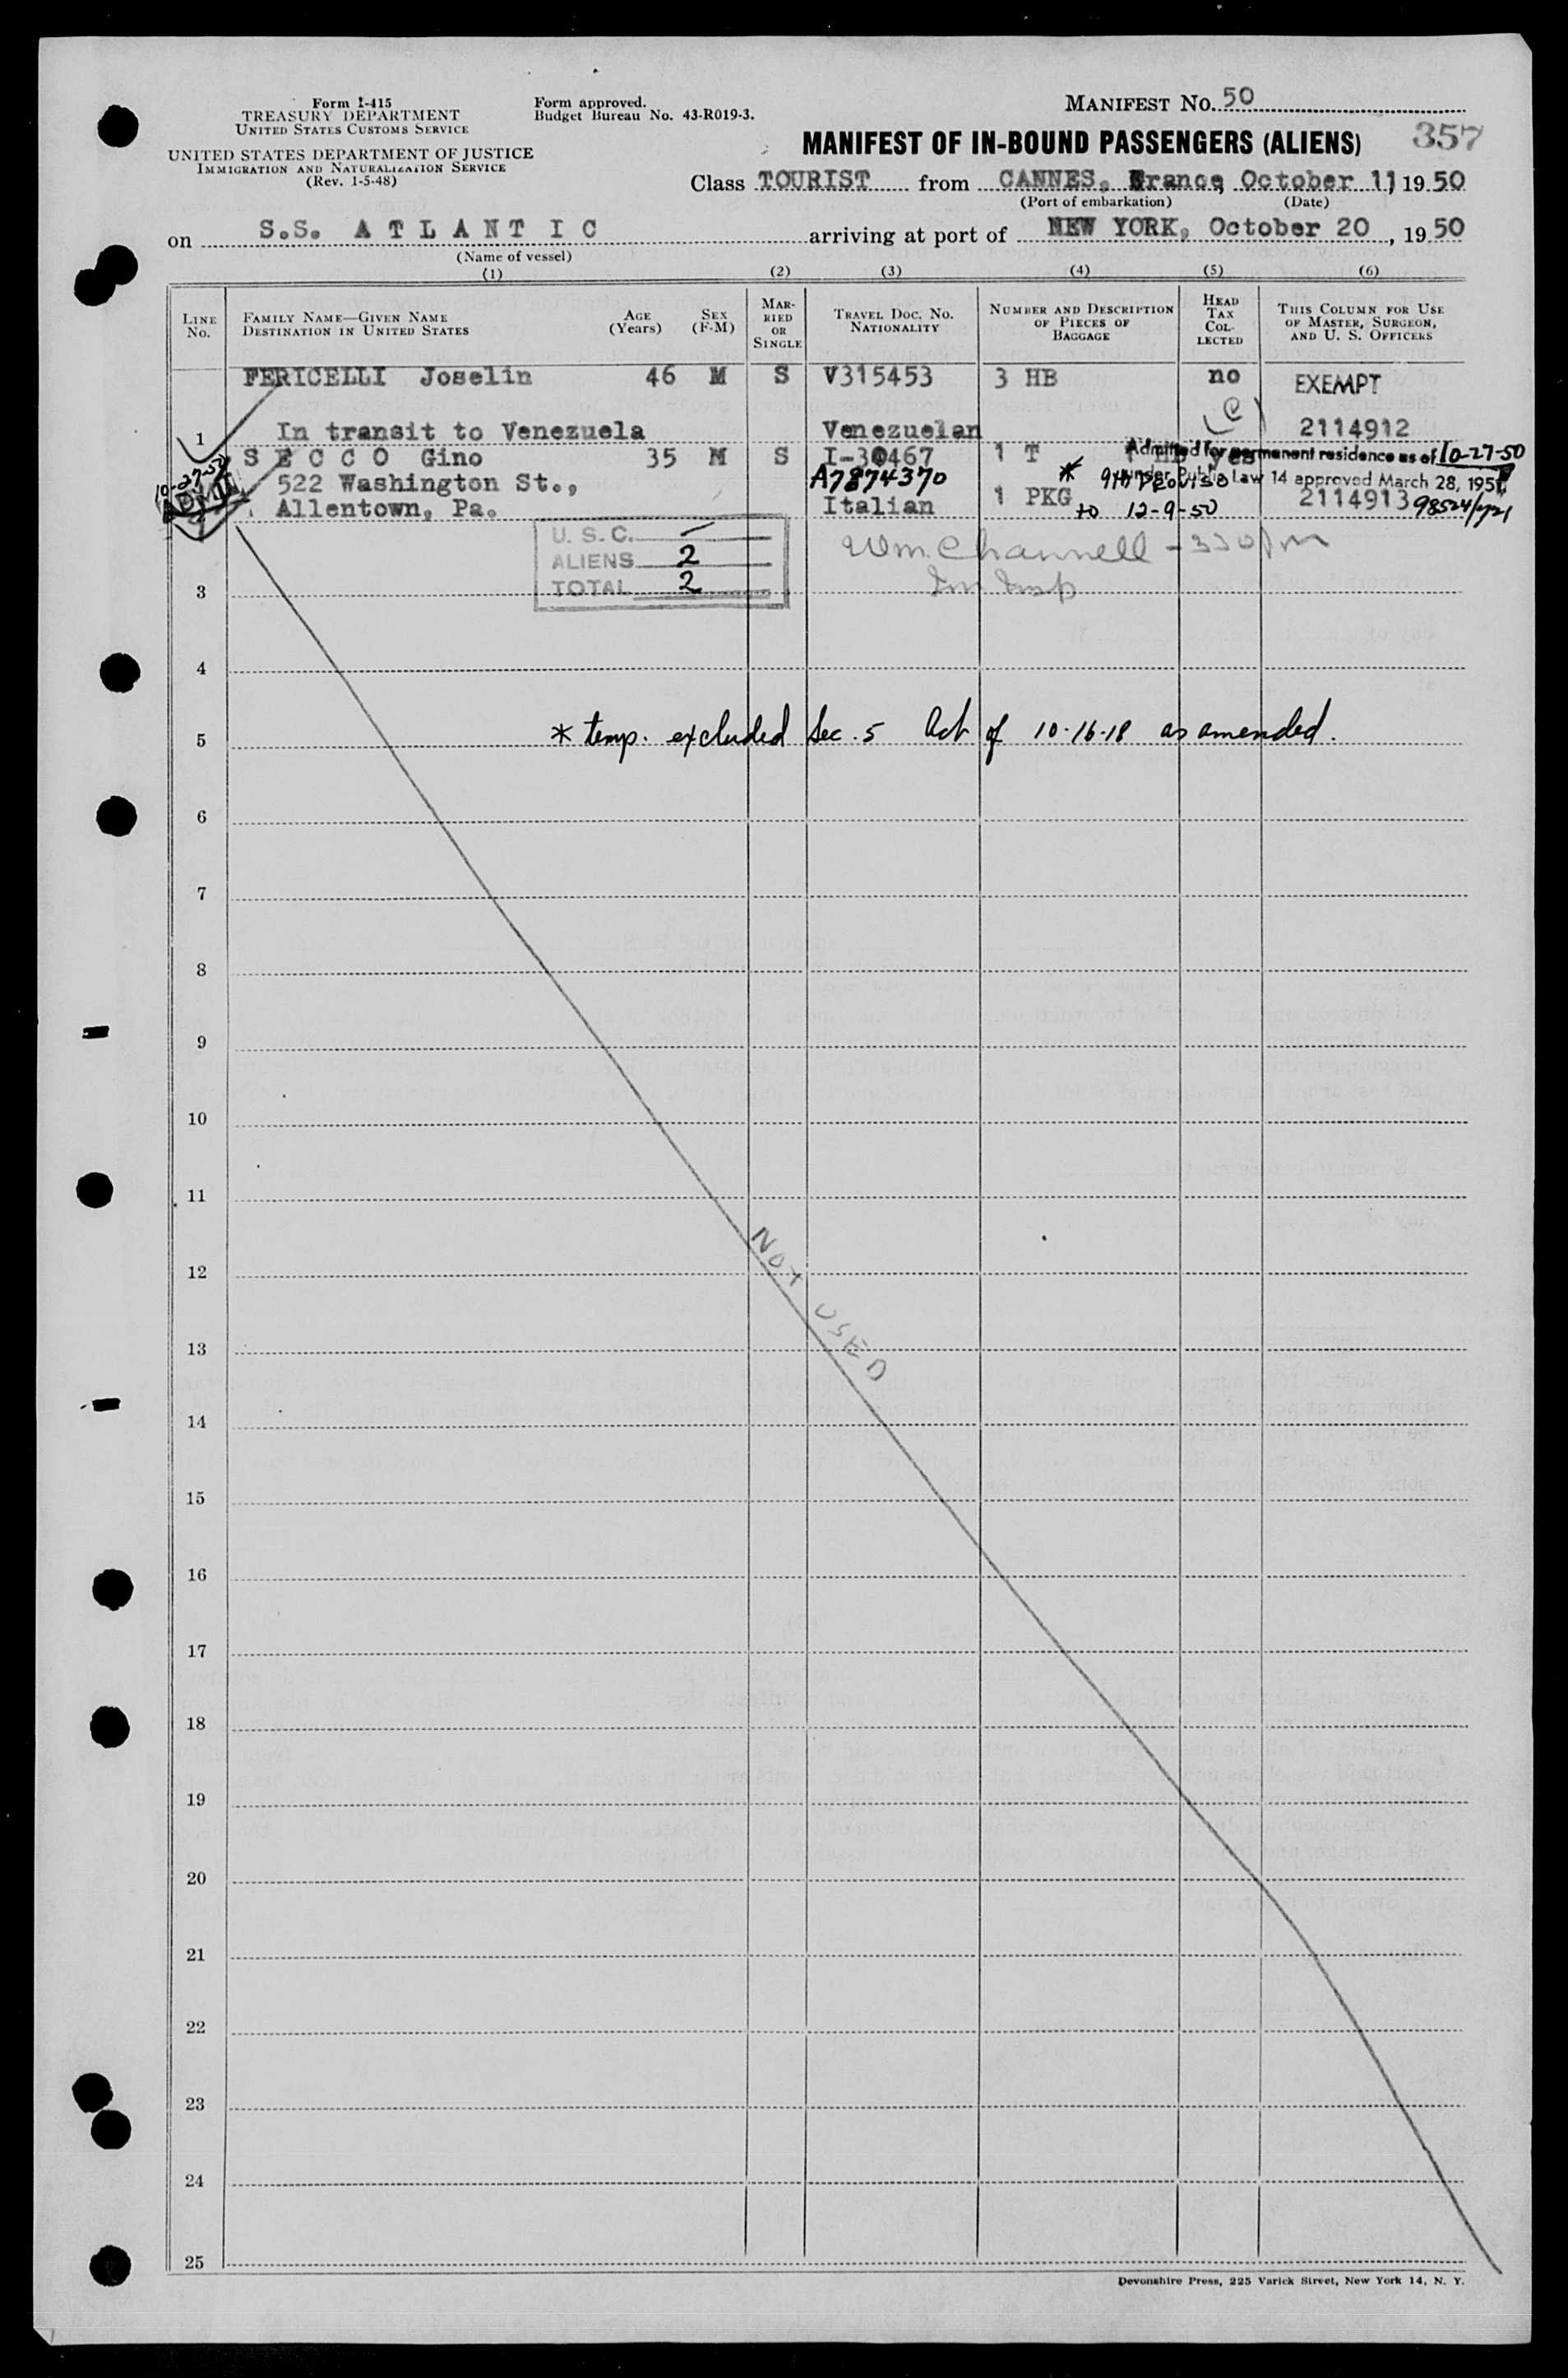 Form I-415
TREASURY DEPARTMENT
UNITED STATES CUSTOMS SERVICE
UNITED STATES DEPARTMENT OF JUSTICE
IMMIGRATION AND NATURALIZATION SERVICE
(Rev. 1-5-48)
Form approved.
Budget Bureau No. 43-R019-3.
MANIFEST NO. 50
MANIFEST OF IN-BOUND PASSENGERS (ALIENS) 357
Class TOURIST from CANNES, France, October 11 19 50
(Port of embarkation) (Date)
on S.S. ATLANTIC arriving at port of NEW YORK, October 20, 19 50
(Name of vessel)
(1) (2) (3) (4) (5) (6)
LINE NO. FAMILY NAME—GIVEN NAME DESTINATION IN UNITED STATES AGE (Years) SEX (F-M) MARRIED OR SINGLE TRAVEL DOC. NO. NATIONALITY NUMBER AND DESCRIPTION OF PIECES OF BAGGAGE HEAD TAX COLLECTED THIS COLUMN FOR USE OF MASTER, SURGEON, AND U. S. OFFICERS
FERICELLI Joselin 46 M S V315453 3 HB no EXEMPT
(C)
1 In transit to Venezuela Venezuelan 2114912
SECCO Gino 35 M S I-30467 1 T yes Admitted for permanent residence as of 10-27-50
10-27-50 522 Washington St., A7874370 * 9th Proviso under Public Law 14 approved March 28, 1951
Allentown, Pa. Italian 1 PKG to 12-9-50 2114913 98524/721
U. S. C. —
ALIENS 2
TOTAL 2
Wm. Channell - 330 pm
Im Insp
3
4
5 * temp. excluded Sec. 5 Act of 10-16-18 as amended.
6
7
8
9
10
11
12
NOT USED
13
14
15
16
17
18
19
20
21
22
23
24
25
Devonshire Press, 225 Varick Street, New York 14, N. Y.